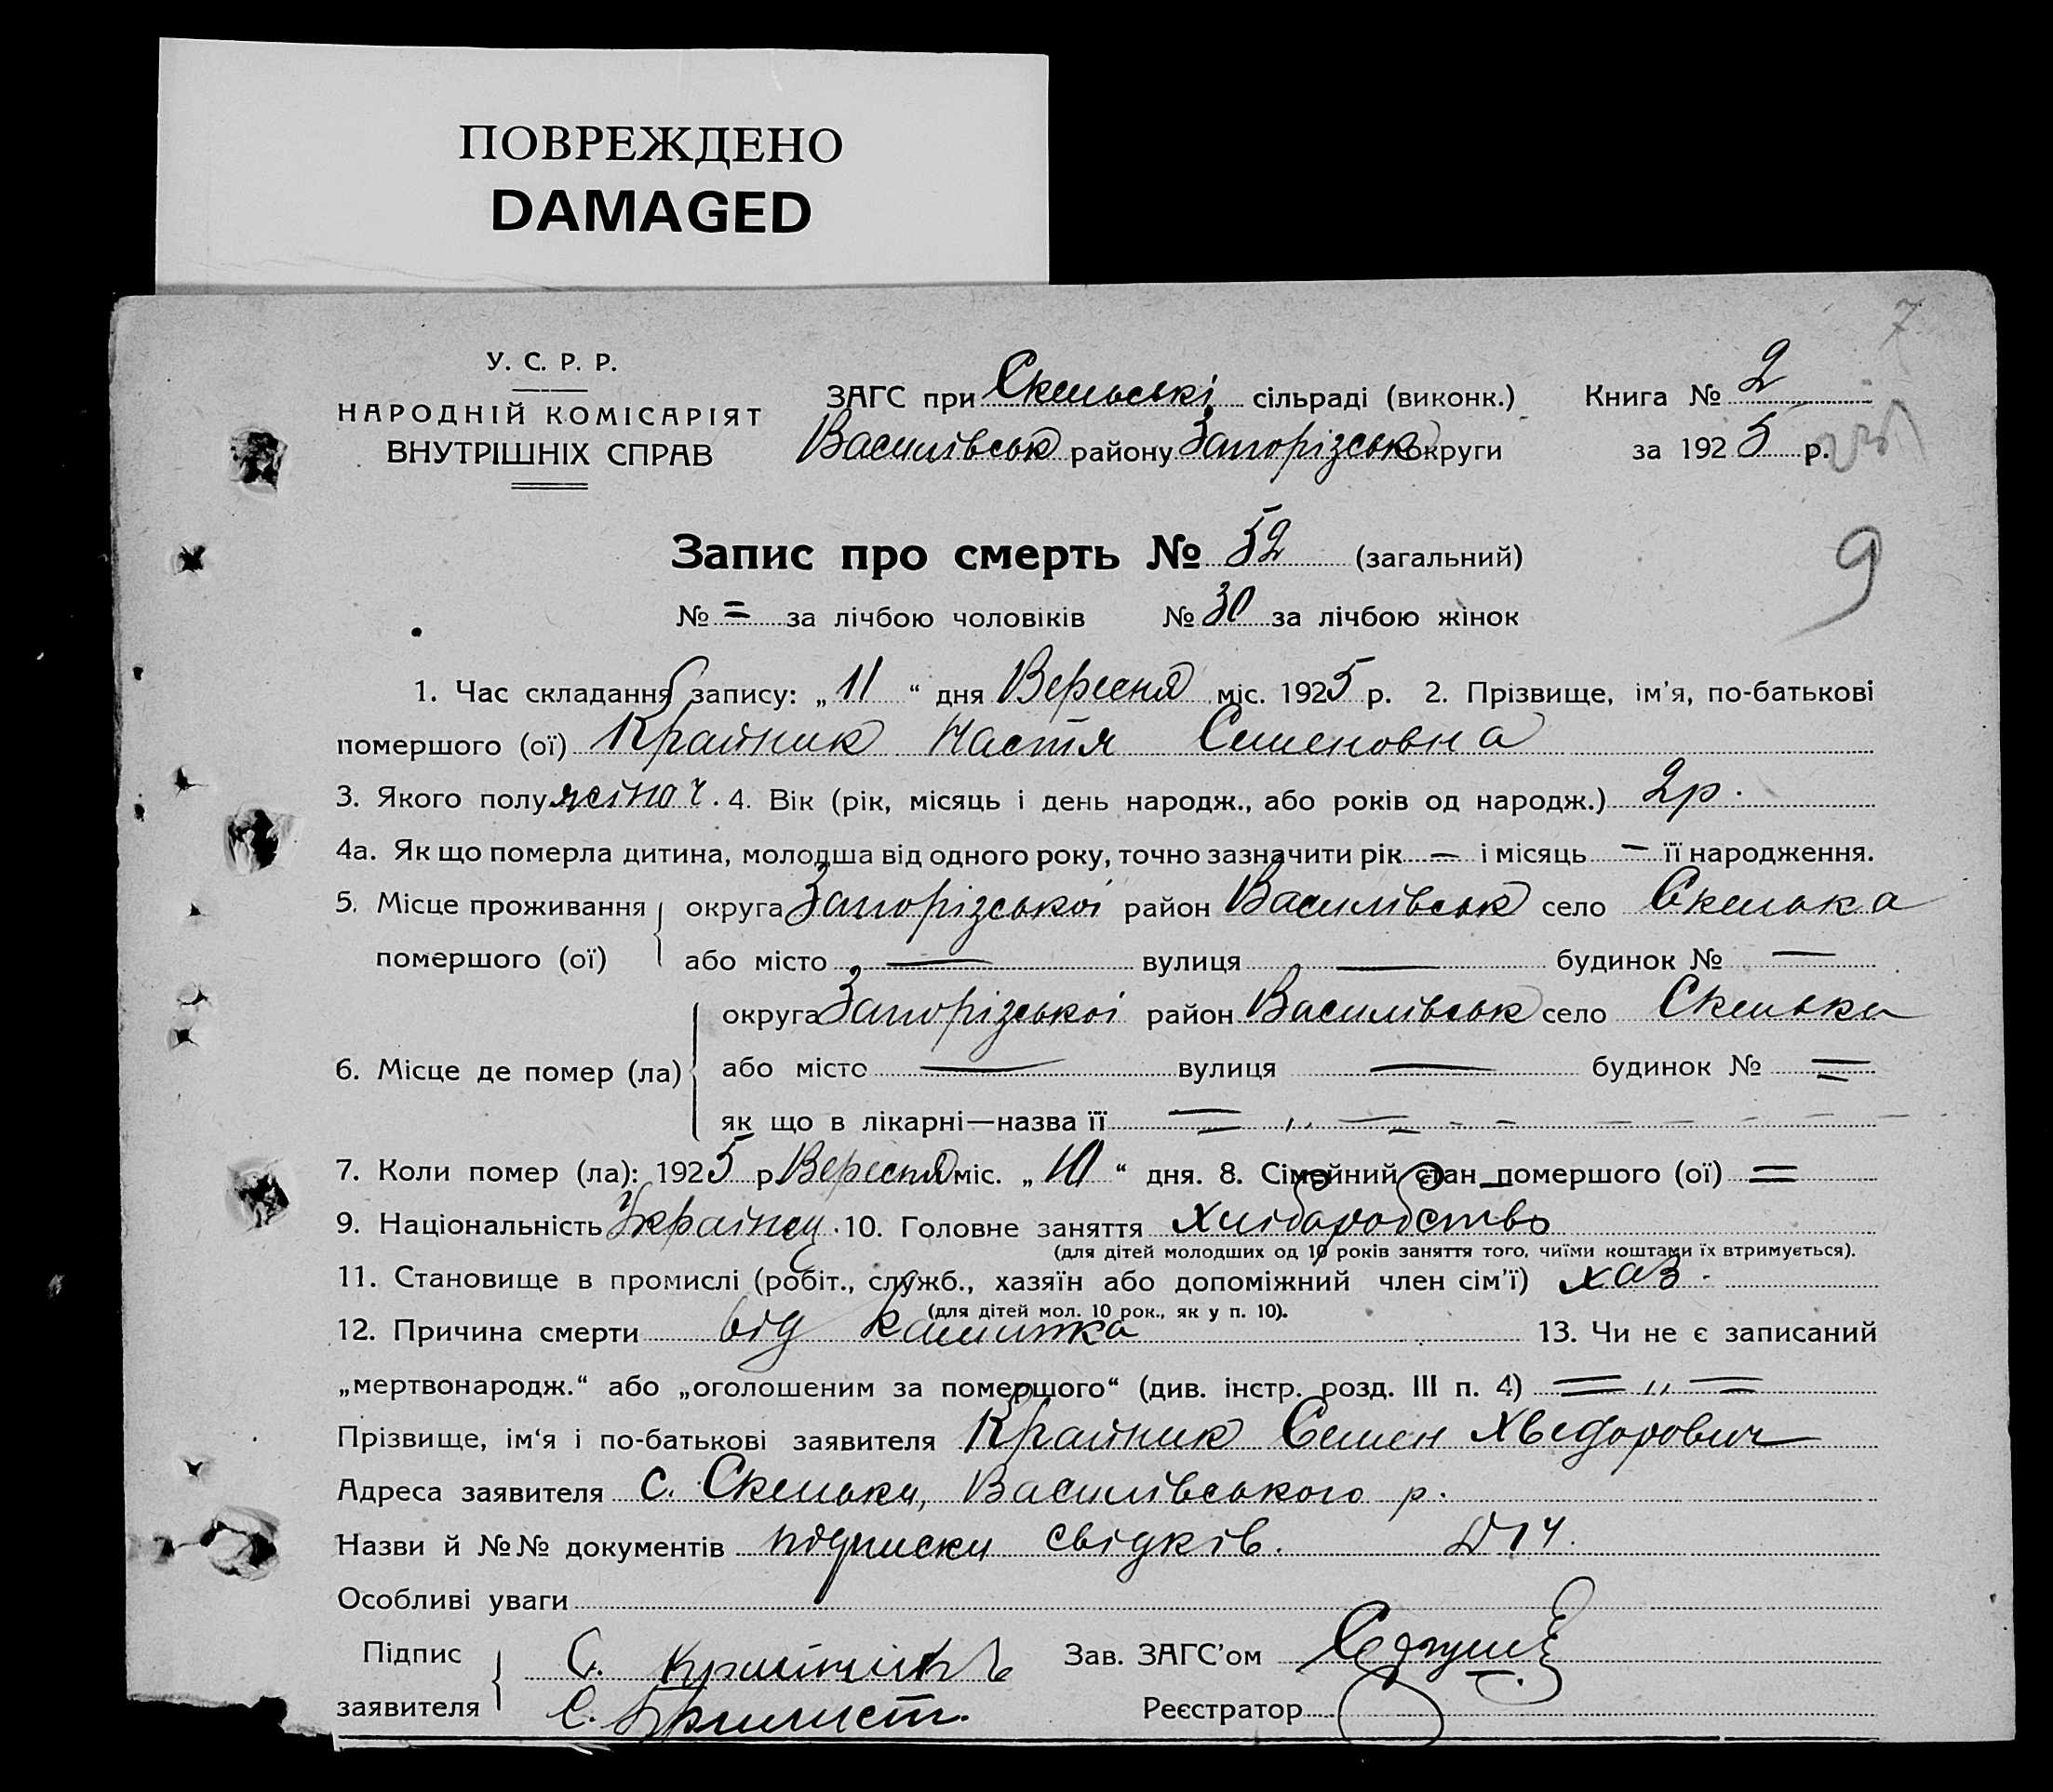 ПОВРЕЖДЕНО
DAMAGED
7
У. С. Р. Р.
НАРОДНІЙ КОМІСАРІЯТ
ВНУТРІШНІХ СПРАВ
ЗАГС при Скельські сільраді (виконк.) Книга № 2
Василівськ району Запорізськ округи за 1925 р.
Запис про смерть № 52 (загальний)
9
№ = за лічбою чоловіків № 30 за лічбою жінок
1. Час складання запису: „ 11 “ дня Вересня міс. 1925 р. 2. Прізвище, ім’я, по-батькові
помершого (ої) Крайник Настя Семеновна
3. Якого полу жіноч. 4. Вік (рік, місяць і день народж., або років од народж.) 2р.
4а. Як що померла дитина, молодша від одного року, точно зазначити рік — і місяць — її народження.
5. Місце проживання округа Запорізської район Василівськ село Скелька
помершого (ої) або місто — вулиця — будинок № —
округа Запорізької район Василівськ село Скельки
6. Місце де помер (ла) або місто — вулиця — будинок № =
як що в лікарні—назва її = „ =
7. Коли помер (ла): 1925 р Вересня міс. „ 10 “ дня. 8. Сімейний стан помершого (ої) =
9. Національність Українц. 10. Головне заняття хліборобство
(для дітей молодших од 10 років заняття того, чиїми коштами їх втримується).
11. Становище в промислі (робіт., служб., хазяїн або допоміжний член сім’ї) хаз.
(для дітей мол. 10 рок., як у п. 10).
12. Причина смерти від кашлюка 13. Чи не є записаний
„мертвонародж.“ або „оголошеним за помершого“ (див. інстр. розд. III п. 4) = „ =
Прізвище, ім‘я і по-батькові заявителя Крайник Семен Хведорович
Адреса заявителя с. Скельки, Василівського р.
Назви й №№ документів підписки свідків.
Особливі уваги
Підпис Зав. ЗАГС’ом
заявителя Реєстратор